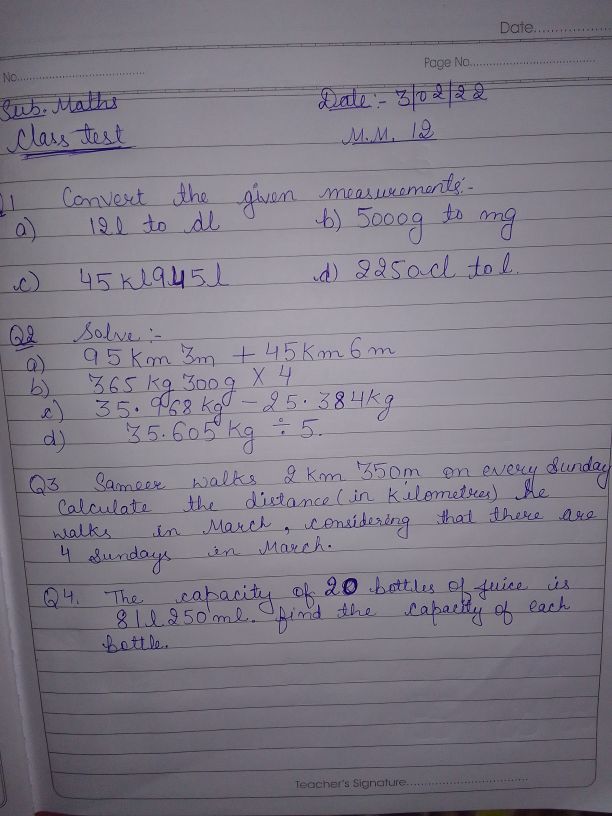 Date
Page No.
No.
Sub. Maths Date:- 3/02/22
Class test M.M. 12
Q1 Convert the given measurements:-
a) 12l to dl b) 5000g to mg
c) 45 kl 945l d) 2250cl to l.
Q2 Solve:-
a) 95 km 3m + 45 km 6 m
b) 365 kg 300 g X 4
c) 35.968 kg - 25.384 kg
d) 35.605 kg ÷ 5.
Q3 Sameer walks 2 km 350m on every Sunday
Calculate the distance (in Kilometres) he
walks in March, considering that there are
4 Sundays in March.
Q4. The capacity of 20 bottles of juice is
81l 250 ml. find the capacity of each
bottle.
Teacher's Signature